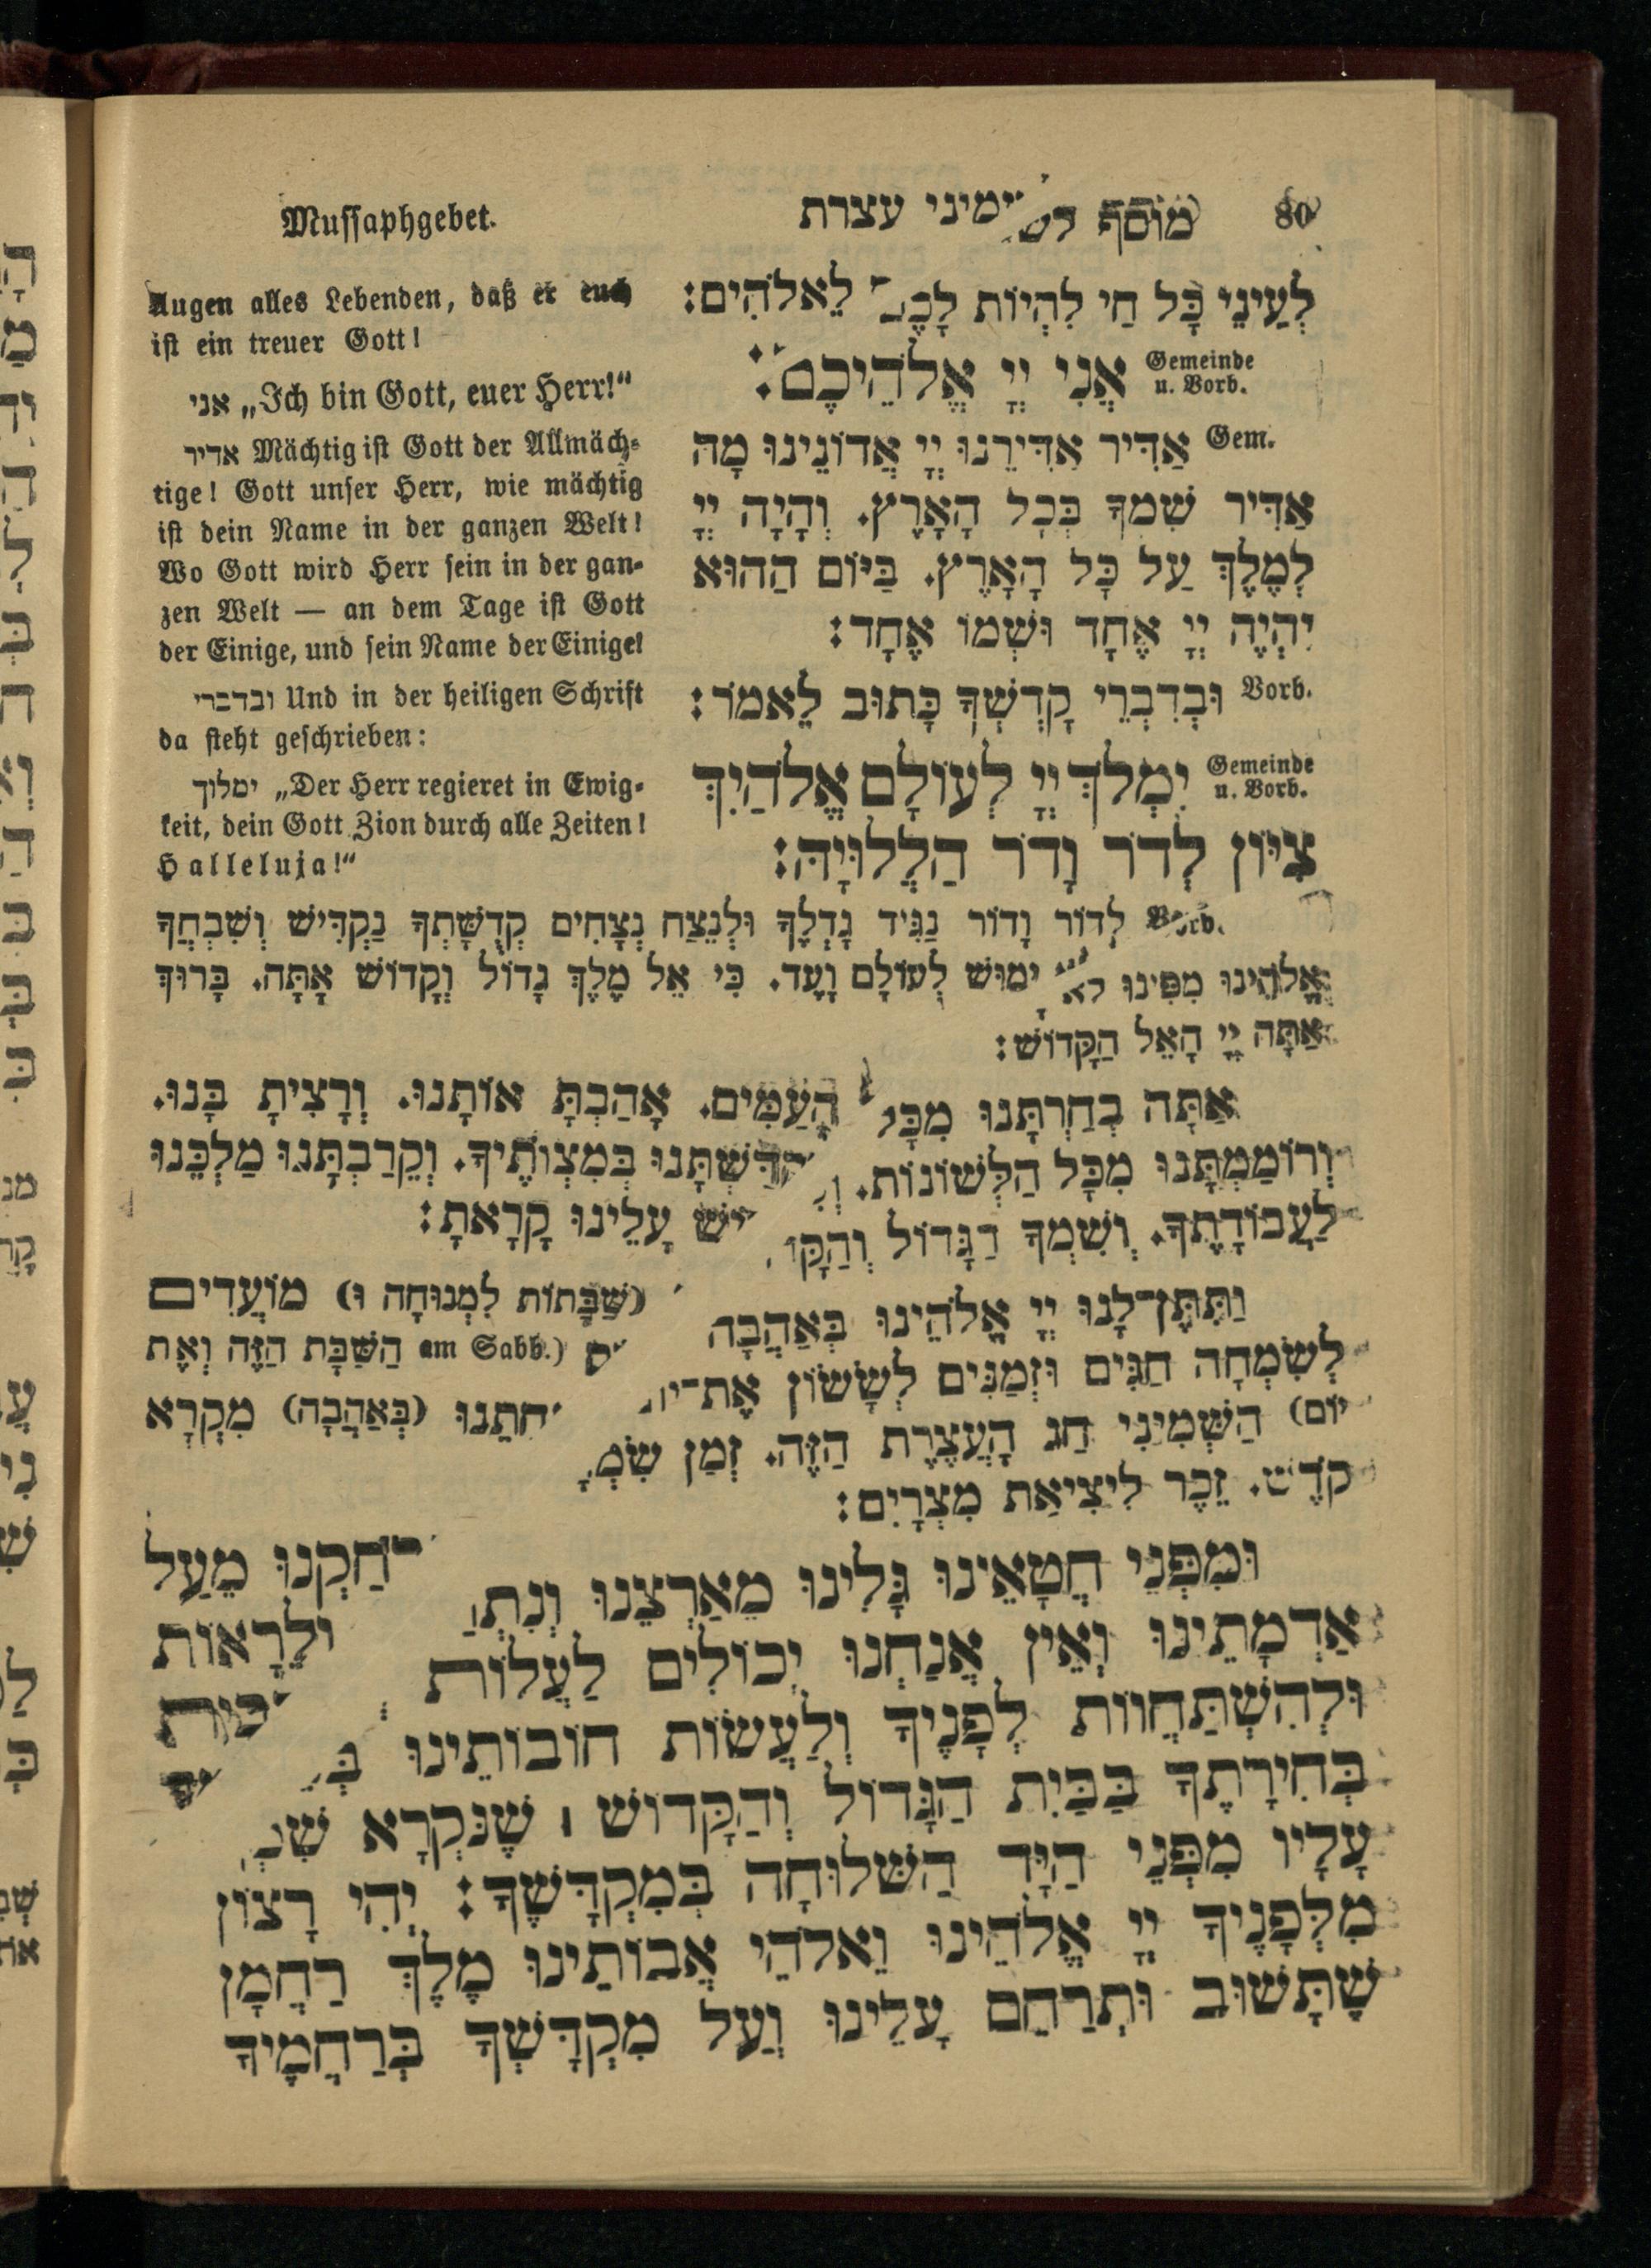 80 מוסף ימיני עצרת
Mussaphgebet.
לְעֵינֵי כָּל חַי לִהְיוֹת לֵאלֹהִים:
Gemeinde
u. Vorb.
אֲנִי יְיָ אֱלֹהֵיכֶם:
Gem. אַדִּיר אַדִּירֵנוּ יְיָ אֲדוֹנֵינוּ מָה
אַדִּיר שִׁמְךָ בְּכָל הָאָרֶץ. וְהָיָה יְיָ
לְמֶלֶךְ עַל כָּל הָאָרֶץ. בַּיּוֹם הַהוּא
יִהְיֶה יְיָ אֶחָד וּשְׁמוֹ אֶחָד:
Vorb. וּבְדִבְרֵי קָדְשְׁךָ כָּתוּב לֵאמֹר:
Gemeinde
u. Vorb.
יִמְלֹךְ יְיָ לְעוֹלָם אֱלֹהַיִךְ
צִיּוֹן לְדֹר וָדֹר הַלְלוּיָהּ:
Augen alles Lebenden, daß er euch
ist ein treuer Gott!
אני „Ich bin Gott, euer Herr!“
אדיר Mächtig ist Gott der Allmäch-
tige! Gott unser Herr, wie mächtig
ist dein Name in der ganzen Welt!
Wo Gott wird Herr sein in der gan-
zen Welt — an dem Tage ist Gott
der Einige, und sein Name der Einige!
ובדברי Und in der heiligen Schrift
da steht geschrieben:
ימלוך „Der Herr regieret in Ewig-
keit, dein Gott Zion durch alle Zeiten!
Halleluja!“
Vorb. לְדוֹר וָדוֹר נַגִּיד גָּדְלֶךָ וּלְנֵצַח נְצָחִים קְדֻשָּׁתְךָ נַקְדִּישׁ וְשִׁבְחֲךָ
אֱלֹהֵינוּ מִפִּינוּ לֹא יָמוּשׁ לְעוֹלָם וָעֶד. כִּי אֵל מֶלֶךְ גָּדוֹל וְקָדוֹשׁ אָתָּה. בָּרוּךְ
אַתָּה יְיָ הָאֵל הַקָּדוֹשׁ:
אַתָּה בְחַרְתָּנוּ מִכָּל הָעַמִּים. אָהַבְתָּ אוֹתָנוּ. וְרָצִיתָ בָּנוּ.
וְרוֹמַמְתָּנוּ מִכָּל הַלְּשׁוֹנוֹת. בְּמִצְוֹתֶיךָ. וְקֵרַבְתָּנוּ מַלְכֵּנוּ
לַעֲבוֹדָתֶךָ. וְשִׁמְךָ הַגָּדוֹל עָלֵינוּ קָרָאתָ:
וַתִּתֶּן־לָנוּ יְיָ אֱלֹהֵינוּ בְּאַהֲבָה (שַׁבָּתוֹת לִמְנוּחָה וּ) מוֹעֲדִים
לְשִׂמְחָה חַגִּים וּזְמַנִּים לְשָׂשׂוֹן (am Sabb. הַשַּׁבָּת הַזֶּה וְאֶת
יוֹם) הַשְּׁמִינִי חַג הָעֲצֶרֶת הַזֶּה. זְמַן (בְּאַהֲבָה) מִקְרָא
קֹדֶשׁ. זֵכֶר לִיצִיאַת מִצְרָיִם:
וּמִפְּנֵי חֲטָאֵינוּ גָּלִינוּ מֵאַרְצֵנוּ מֵעַל
אַדְמָתֵינוּ וְאֵין אֲנַחְנוּ יְכוֹלִים לַעֲלוֹת וְלֵרָאוֹת
וּלְהִשְׁתַּחֲווֹת לְפָנֶיךָ וְלַעֲשׂוֹת חוֹבוֹתֵינוּ
בְּחִירָתֶךָ בַּבַּיִת הַגָּדוֹל וְהַקָּדוֹשׁ שֶׁנִּקְרָא
עָלָיו מִפְּנֵי הַיָּד הַשְּׁלוּחָה בְּמִקְדָּשֶׁךָ: יְהִי רָצוֹן
מִלְּפָנֶיךָ יְיָ אֱלֹהֵינוּ וֵאלֹהֵי אֲבוֹתֵינוּ מֶלֶךְ רַחֲמָן
שֶׁתָּשׁוּב וּתְרַחֵם עָלֵינוּ וְעַל מִקְדָּשְׁךָ בְּרַחֲמֶיךָ